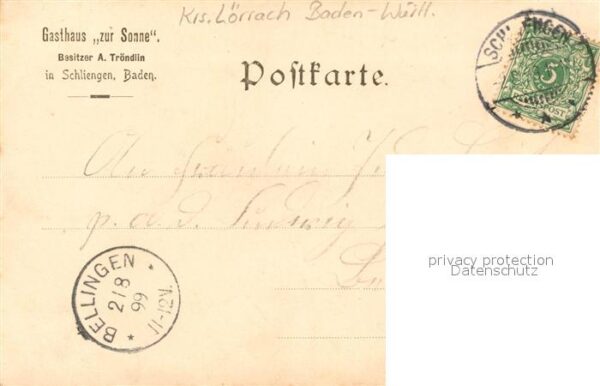 Krs. Lörrach Baden-Württ.
Gasthaus „zur Sonne".
Besitzer A. Tröndlin
in Schliengen, Baden.
Postkarte.
SCHLIENGEN
5
POST
An Fräulein
p. a. d. Ludwig
privacy protection
Datenschutz
BELLINGEN
2/8
99
11-12V.